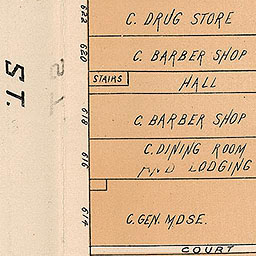 622
C. DRUG STORE
620
C. BARBER SHOP
STAIRS
HALL
618
C. BARBER SHOP
616
C. DINING ROOM
AND LODGING
614
C. GEN. MDSE.
COURT
ST.